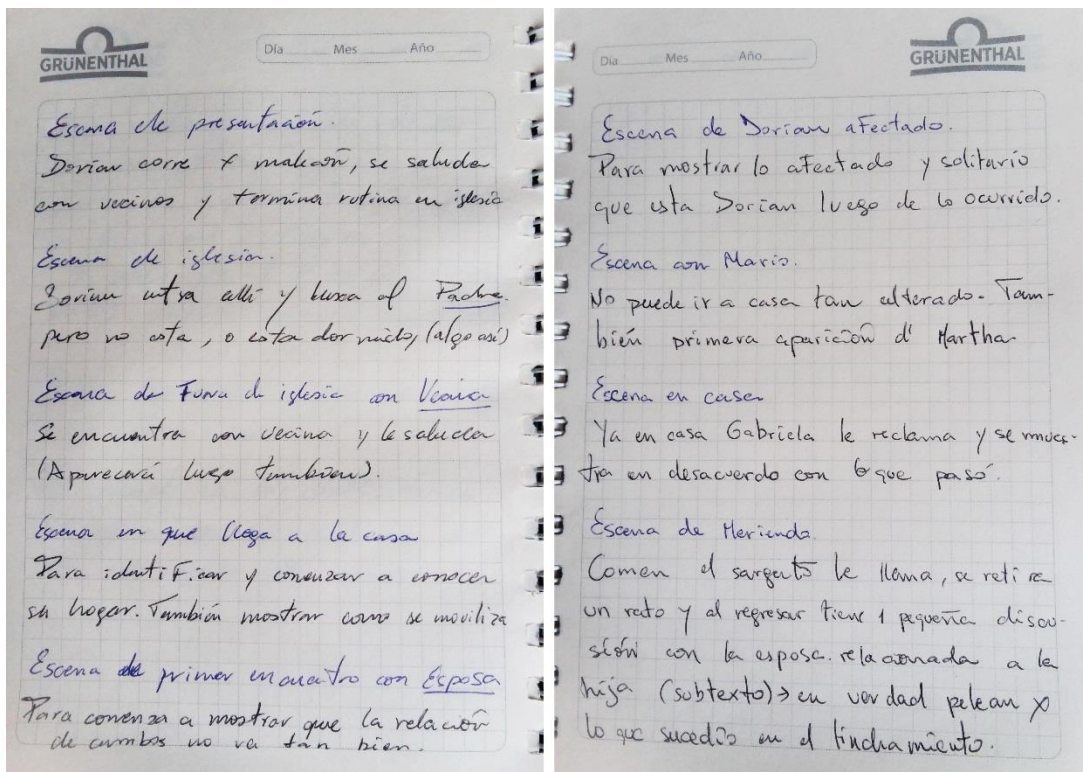 GRÜNENTHAL
Día Mes Año
Escena de presentación.
Dorian corre x malecón, se saluda
con vecinos y termina rutina en iglesia
Escena de iglesia.
Dorian entra allí y busca al Padre.
pero no esta, o esta dormido, (algo asi)
Escena de Fuera de iglesia con Vecina
Se encuentra con vecina y le saluda
(Aparecerá luego tambien).
Escena en que llega a la casa
Para identificar y comenzar a conocer
su hogar. También mostrar como se moviliza
Escena de primer encuentro con Esposa
Para comenza a mostrar que la relación
de ambos no va tan bien.
Día Mes Año
GRÜNENTHAL
Escena de Dorian afectado.
Para mostrar lo afectado y solitario
que esta Dorian luego de lo ocurrido.
Escena con Mario.
No puede ir a casa tan alterado. Tam-
bién primera aparición d' Martha
Escena en casa
Ya en casa Gabriela le reclama y se mues-
tra en desacuerdo con lo que pasó.
Escena de Merienda.
Comen el sargento le llama, se retira
un rato y al regresar tiene 1 pequeña discu-
sión con la esposa. relacionada a la
hija (subtexto) → en verdad pelean x
lo que sucedio en el linchamiento.